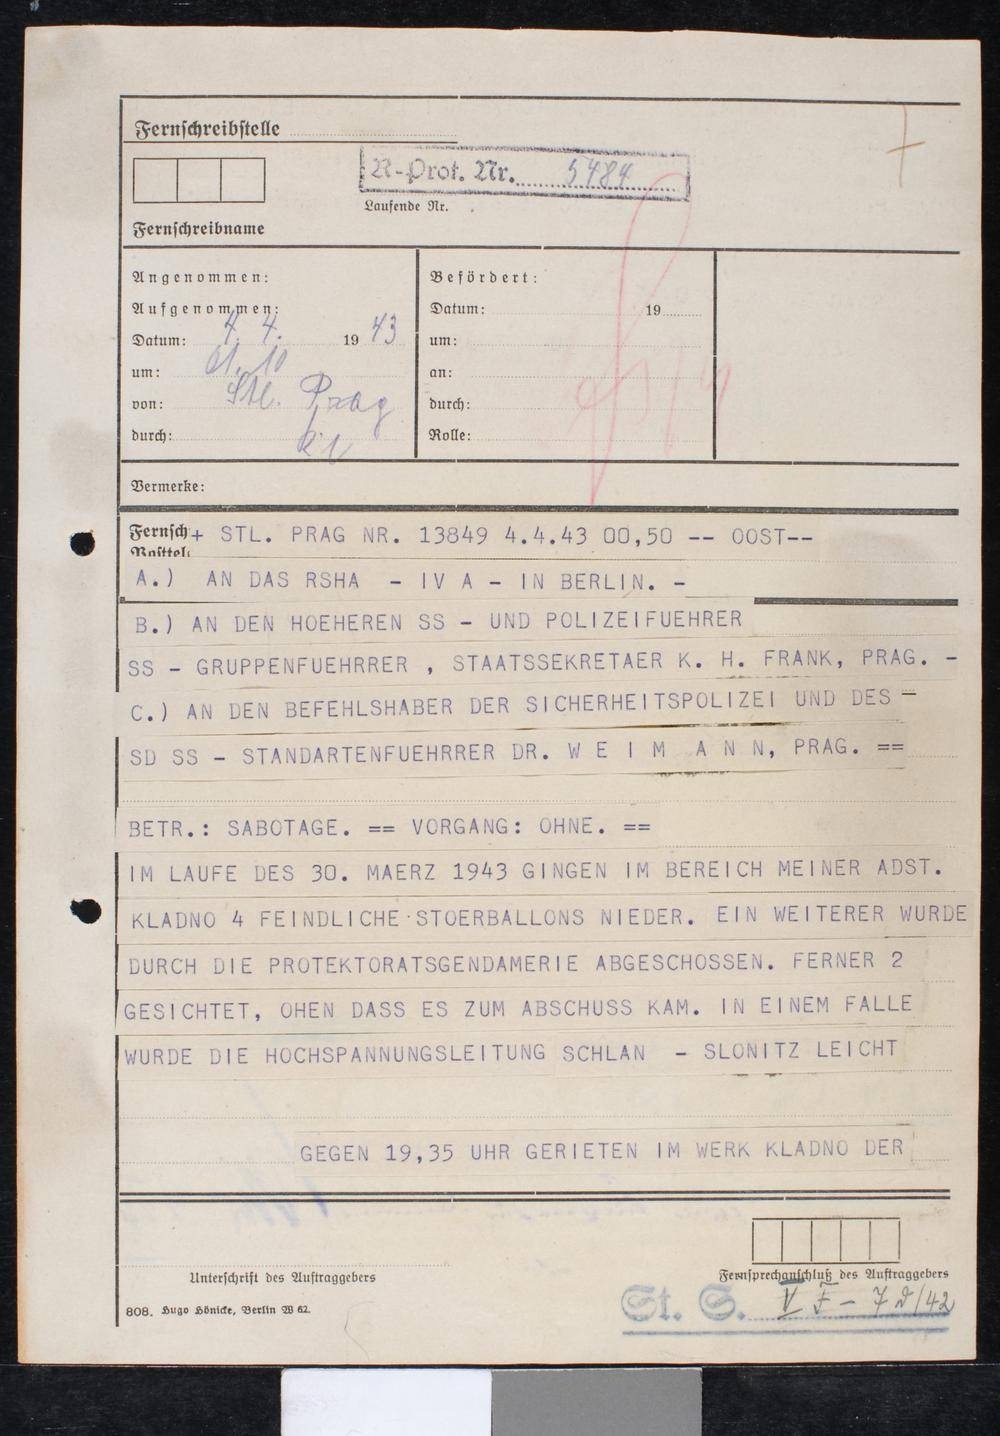 Fernschreibstelle
R-Prot. Nr. 5484
Laufende Nr.
Fernschreibname
Angenommen:
Aufgenommen:
Datum: 4. 4. 19 43
um: 01.10
von: Stl. Prag
durch:
Befördert:
Datum: 19
um:
an:
durch:
Rolle:
Vermerke:
Fernsch + STL. PRAG NR. 13849 4.4.43 00,50 -- OOST--
A.) AN DAS RSHA - IV A - IN BERLIN. -
B.) AN DEN HOEHEREN SS - UND POLIZEIFUEHRER
SS - GRUPPENFUEHRRER , STAATSSEKRETAER K. H. FRANK, PRAG. -
C.) AN DEN BEFEHLSHABER DER SICHERHEITSPOLIZEI UND DES -
SD SS - STANDARTENFUEHRRER DR. W E I M A N N, PRAG. ==
BETR.: SABOTAGE. == VORGANG: OHNE. ==
IM LAUFE DES 30. MAERZ 1943 GINGEN IM BEREICH MEINER ADST.
KLADNO 4 FEINDLICHE STOERBALLONS NIEDER. EIN WEITERER WURDE
DURCH DIE PROTEKTORATSGENDAMERIE ABGESCHOSSEN. FERNER 2
GESICHTET, OHEN DASS ES ZUM ABSCHUSS KAM. IN EINEM FALLE
WURDE DIE HOCHSPANNUNGSLEITUNG SCHLAN - SLONITZ LEICHT
GEGEN 19,35 UHR GERIETEN IM WERK KLADNO DER
Unterschrift des Auftraggebers
Fernsprechanschluß des Auftraggebers
808. Hugo Hönicke, Berlin W 62.
St. S. V F - 7 d/42